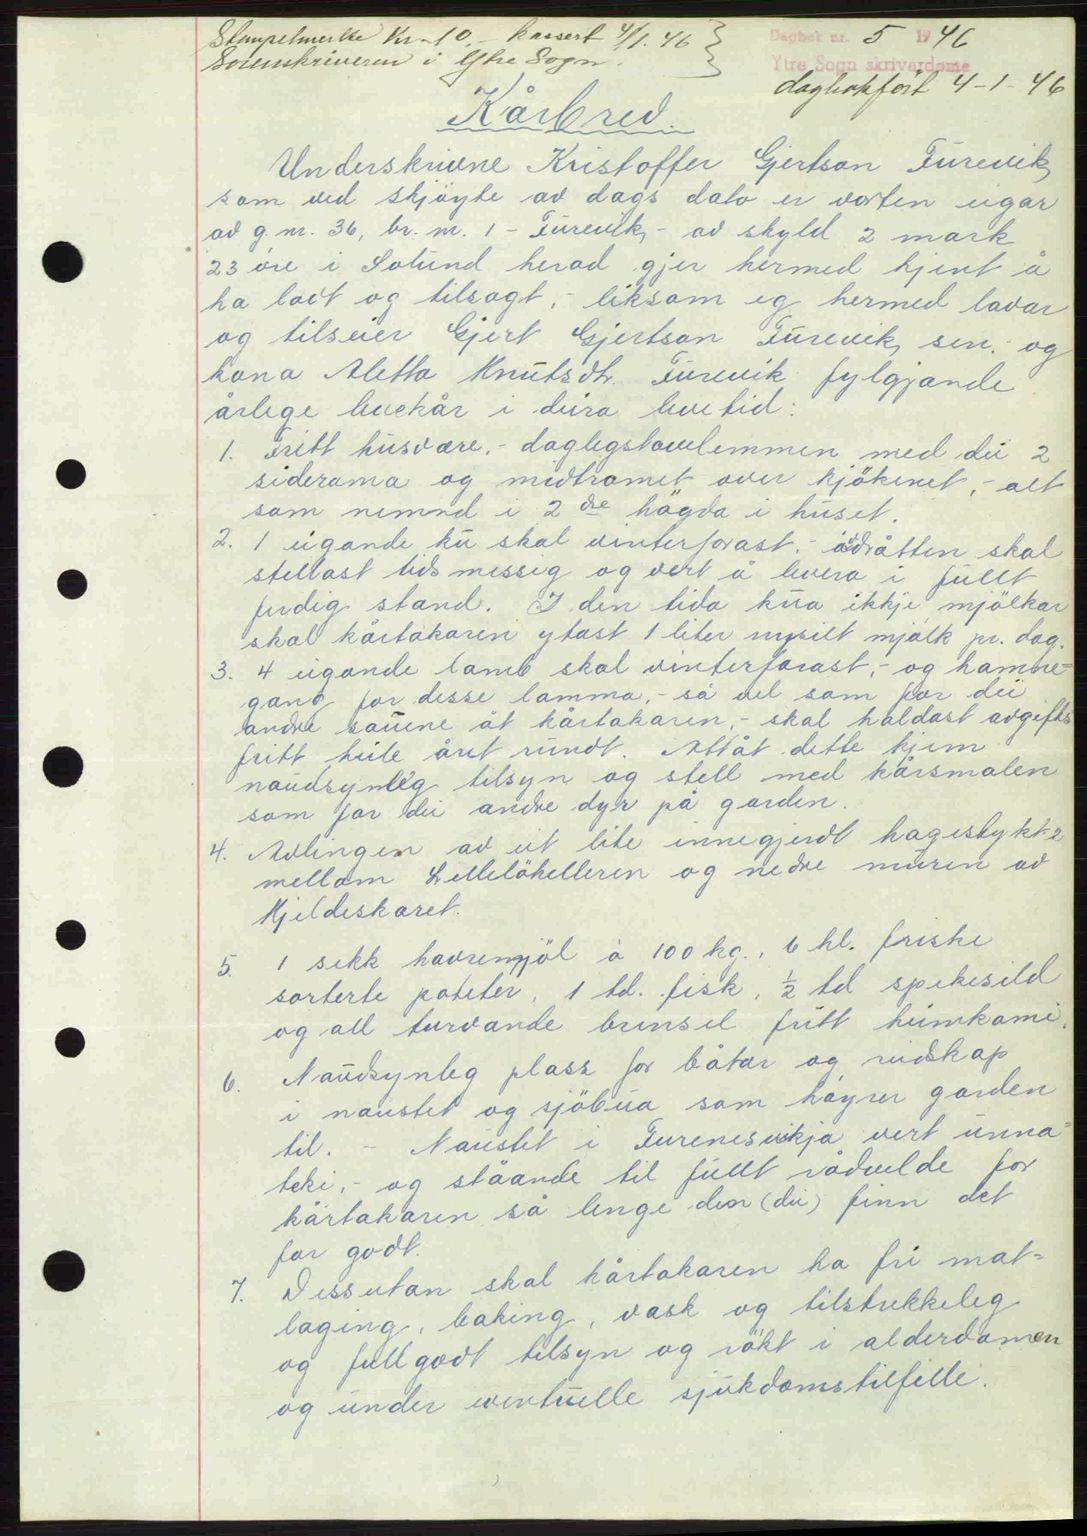 Stempelmerke Kr. 10,- kassert 4/1. 46
Sorenskriveren i Ytre Sogn.
Dagbok nr. 5 1946
Ytre Sogn skriverdøme
dagbokført 4-1-46
Kårbrev.
Underskrivne Kristoffer Gjertson Furevik,
som ved skjöyte av dags dato er vorten eigar
av g.nr. 36, br. nr. 1 - Furevik, - av skyld 2 mark
23 öre i Solund herad gjer hermed kjent å
ha lovt og tilsagt, - liksom eg hermed lovar
og tilseier Gjert Gjertson Furevik, sen. og
kona Aletta Knutsdtr. Furevik fylgjande
årlege levekår i deira levetid:
1. Fritt husvære, - daglegstovelemmen med dei 2
sideroma og midtromet over kjökenet, - alt
som nemnd i 2dre högda i huset.
2. 1 eigande ku skal vinterforast, - åvdråtten skal
stellast tidsmessig og vert å levera i fullt
ferdig stand. I den tida kua ikkje mjölkar
skal kårtakaren ytast 1 liter nysilt mjölk pr. dag.
3. 4 eigande lamb skal vinterforast, - og hamne-
gang for desse lamma, - så vel som for dei
andre sauene åt kårtakaren, - skal haldast avgifts
fritt heile året rundt. Attåt dette kjem
naudsynleg tilsyn og stell med kårsmalen
som for dei andre dyr på garden.
4. Avlingen av eit lite innegjerdt hagestykke
mellom Litlelöhelleren og nedre muren av
Kjeldeskaret.
5. 1 sekk havremjöl à 100 kg., 6 hl. friske
sorterte poteter, 1 td. fisk, ½ td spekesild
og all turvande brensel fritt heimkomi.
6. Naudsynleg plass for båtar og reidskap
i naustet og sjöbua som höyrer garden
til. - Naustet i Furenesvikja vert unna-
teki, - og ståande til fullt rådvelde for
kårtakaren så lenge den (dei) finn det
for godt.
7. Dessutan skal kårtakaren ha fri mat-
laging, baking, vask og tilstrekkeleg
og fullgodt tilsyn og rökt i alderdomen
og under eventuelle sjukdomstilfelle.